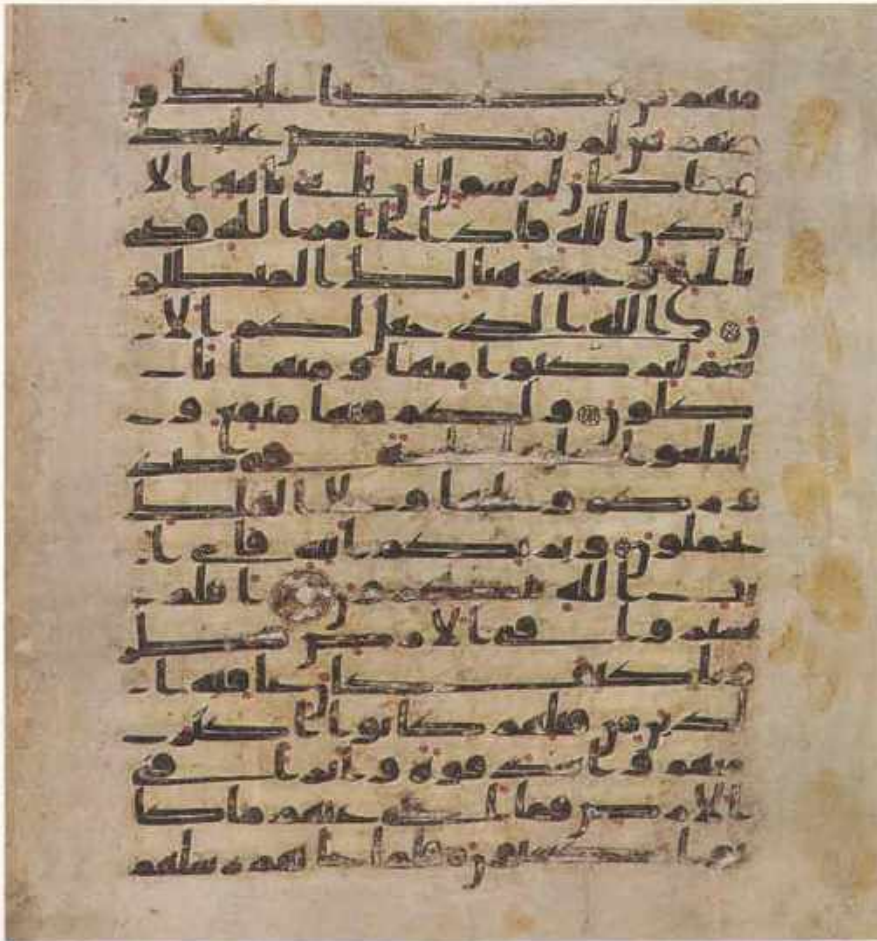 منهم من قصصنا عليك و
منهم من لم نقصص عليك
وما كان لرسول ان ياتي باية الا
باذن الله فاذا جا امر الله قضي
بالحق وخسر هنالك المبطلو
ن الله الذي جعل لكم الا
نعم لتركبوا منها ومنها تا
كلون ولكم فيها منفع و
لتبلغوا عليها حاجة في صد
وركم وعليها وعلى الفلك
تحملون ويريكم ايته فاي ا
يت الله تنكرون افلم
يسيروا في الارض فينظر
وا كيف كان عقبة ا
لذين من قبلهم كانوا اكثر
منهم واشد قوة واثارا في
الارض فما اغنى عنهم ما كا
نوا يكسبون فلما جاتهم رسلهم